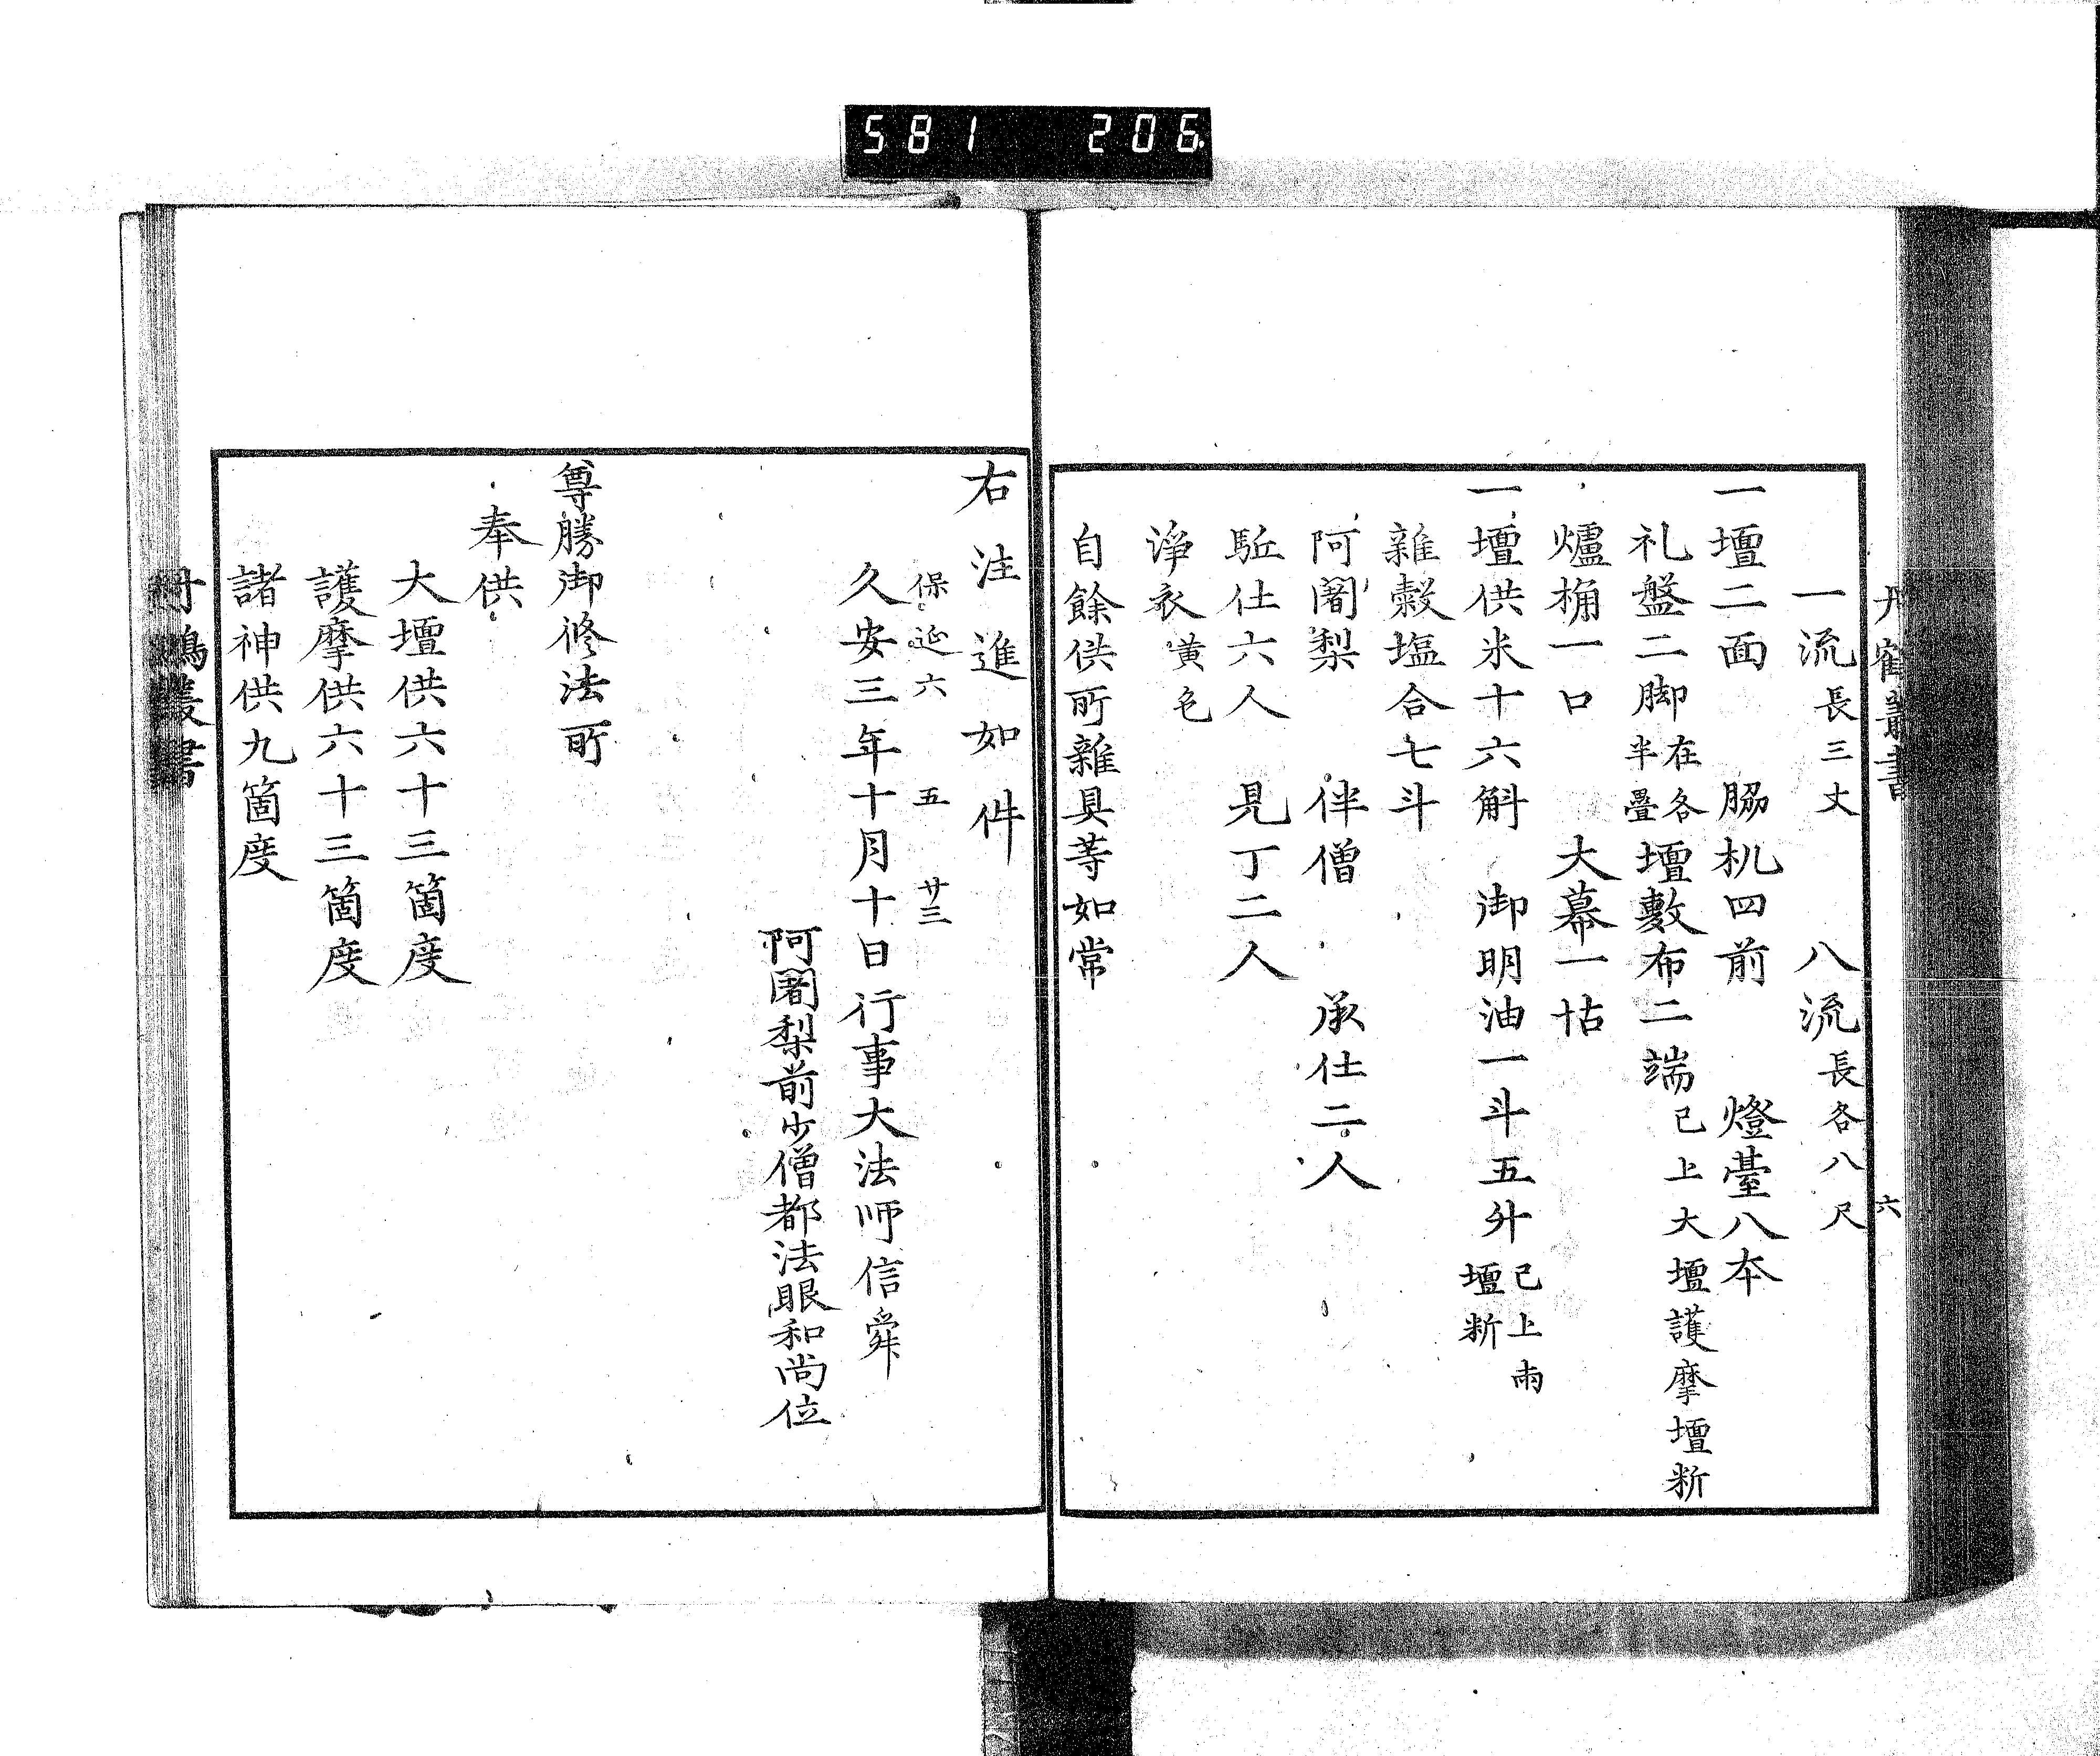 581 206
丹鶴叢書 六
一流長三丈 八流長各八尺
一壇二面 脇机四前 燈臺八本
礼盤二脚在各半疊 壇敷布二端已上大壇護摩壇析
爐桶一口 大幕一帖
一壇供米十六斛 御明油一斗五升已上兩壇析
雜穀塩合七斗
阿闍梨 伴僧 承仕二人
駈仕六人 見丁二人
淨衣黄色
自餘供所雜具等如常
右注進如件
保延六 五 廿三
久安三年十月十日行事大法師信舜
阿闍梨前少僧都法眼和尚位
尊勝御修法所
奉供
大壇供六十三箇度
護摩供六十三箇度
諸神供九箇度
丹鶴叢書